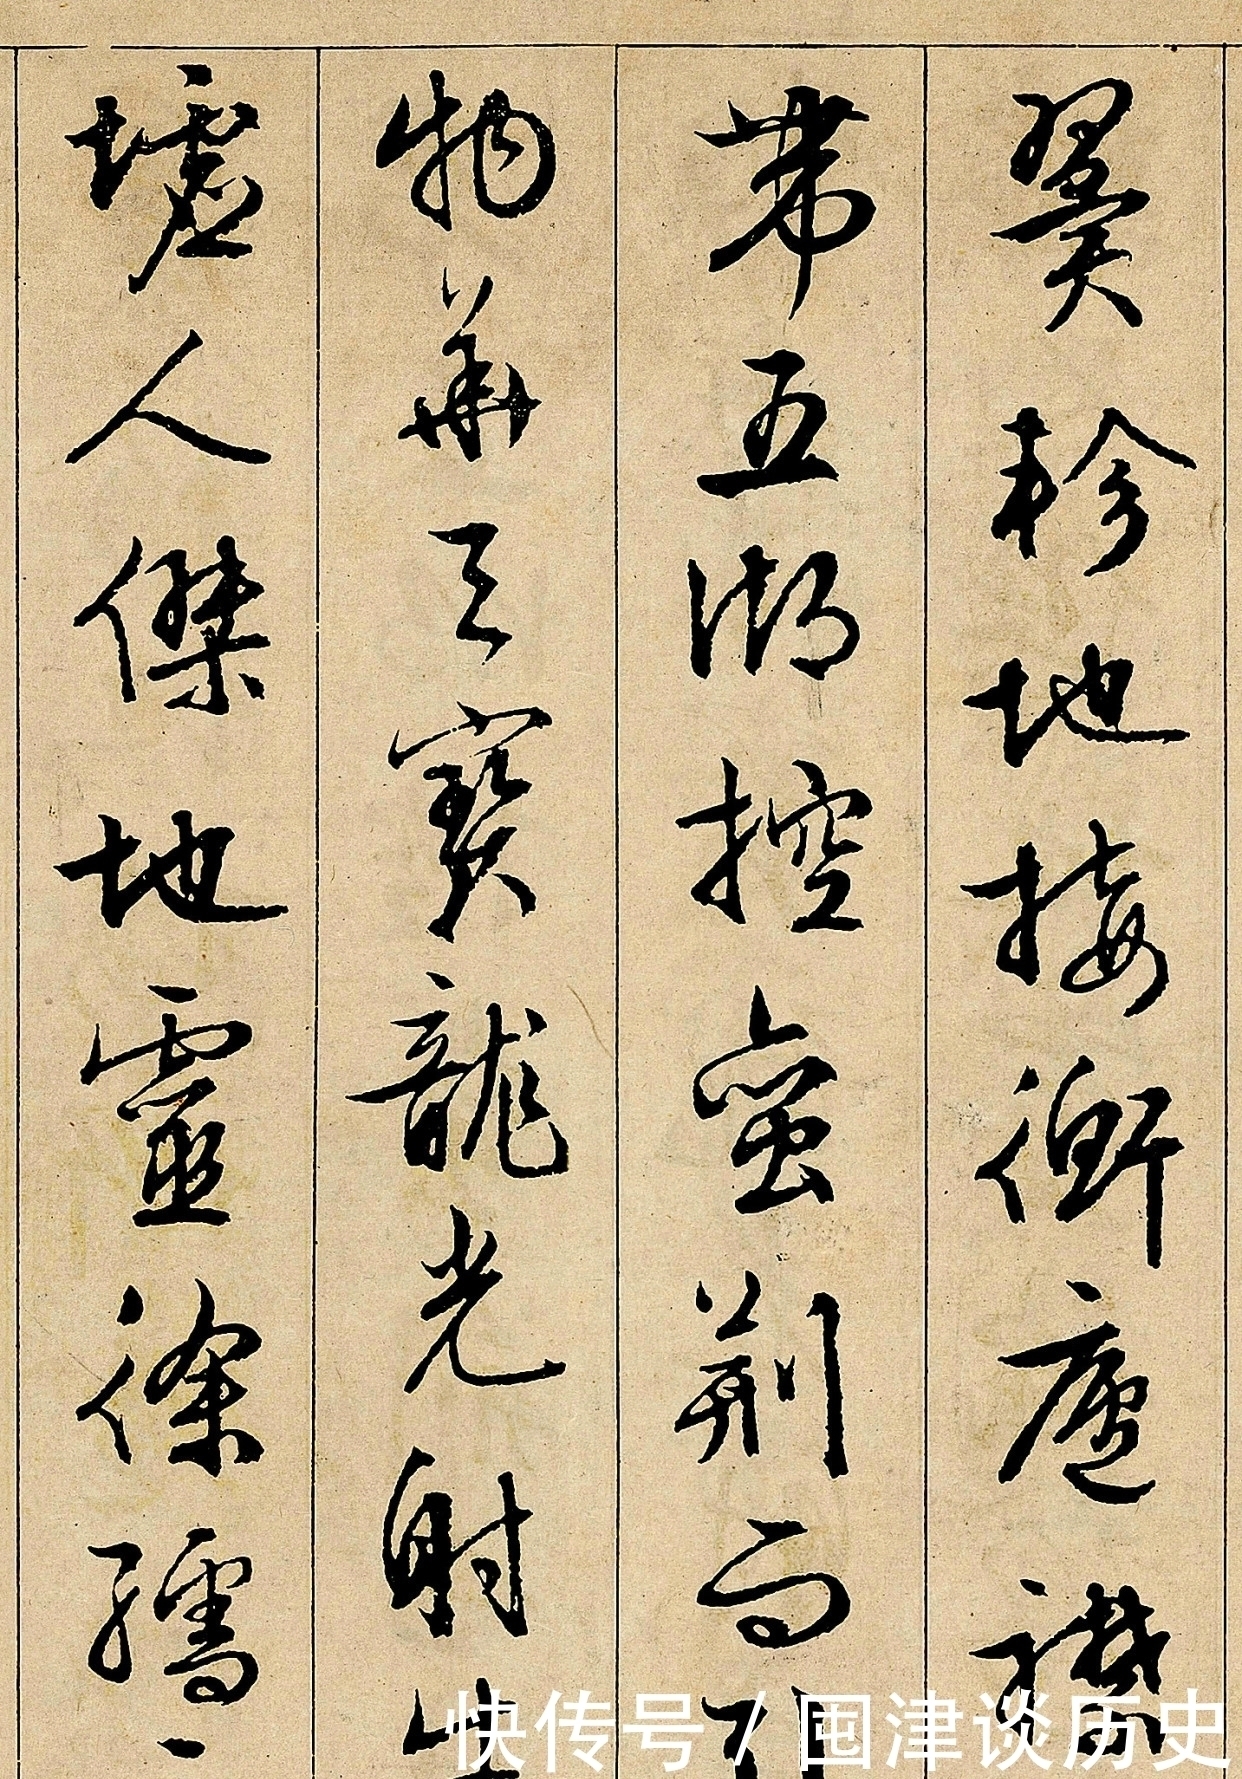 翼軫地接衡廬襟
帶五湖控蠻荆而引
物華天寶龍光射牛
墟人傑地靈徐孺下
快传号 / 囯津谈历史